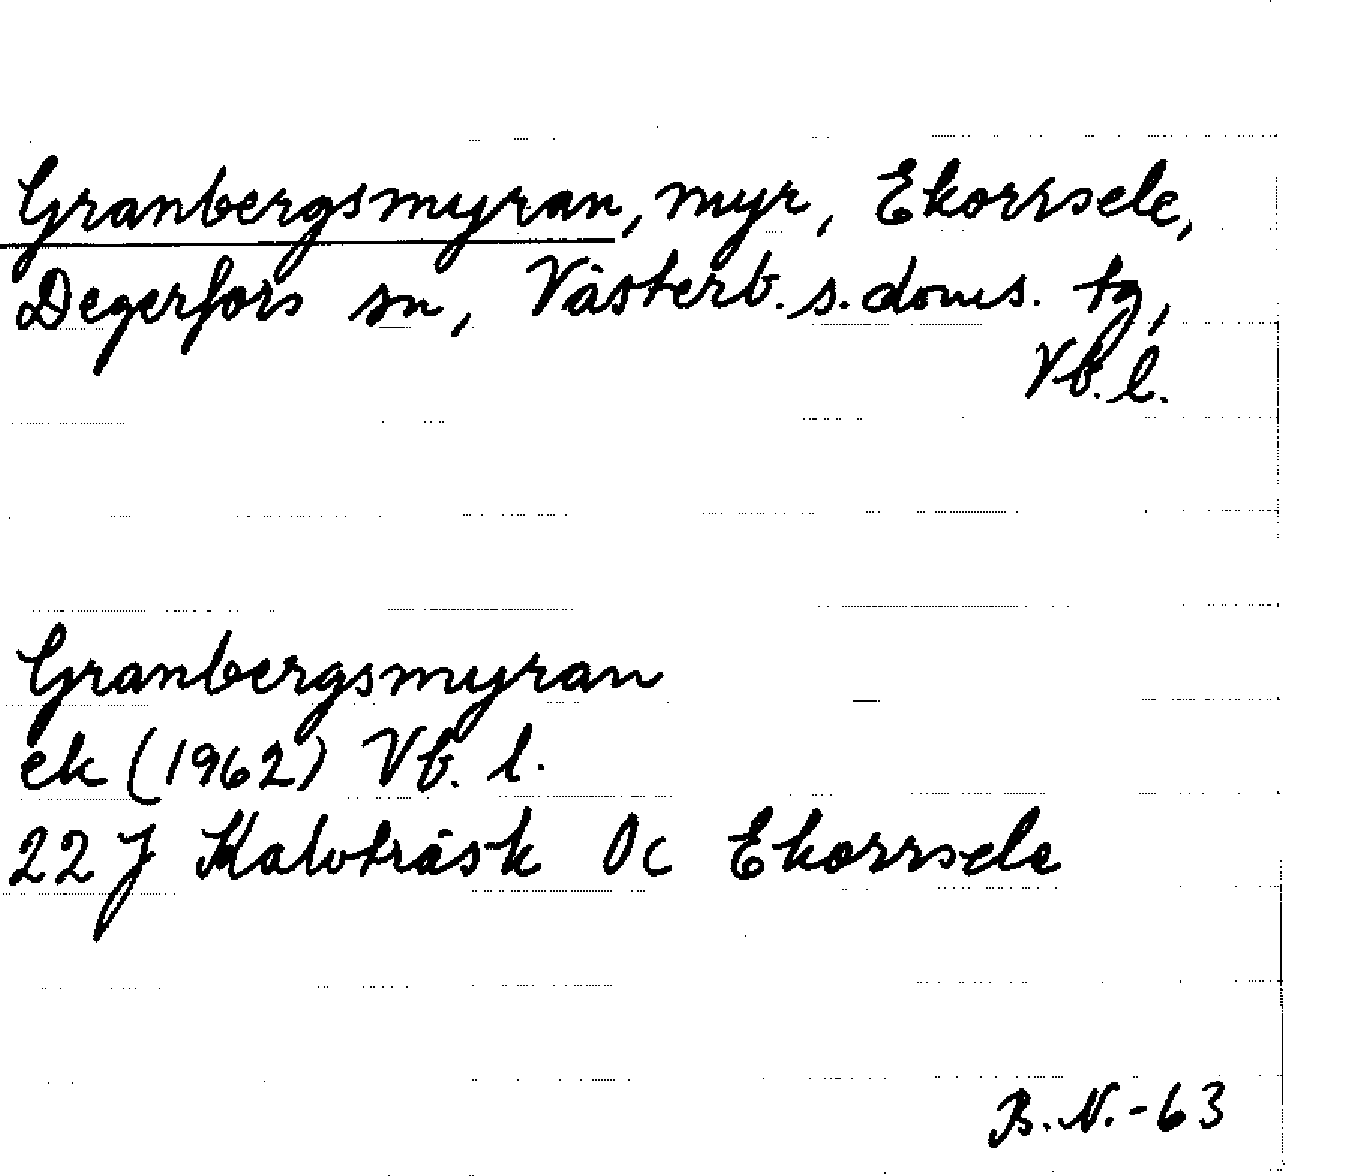 Granbergsmyran, myr, Ekorrsele,
Degerfors sn, Västerb. s. doms. tg,
Vb. l.
Granbergsmyran
ek (1962) Vb. l.
22 J Kalvträsk 0c Ekorrsele
B.N.-63